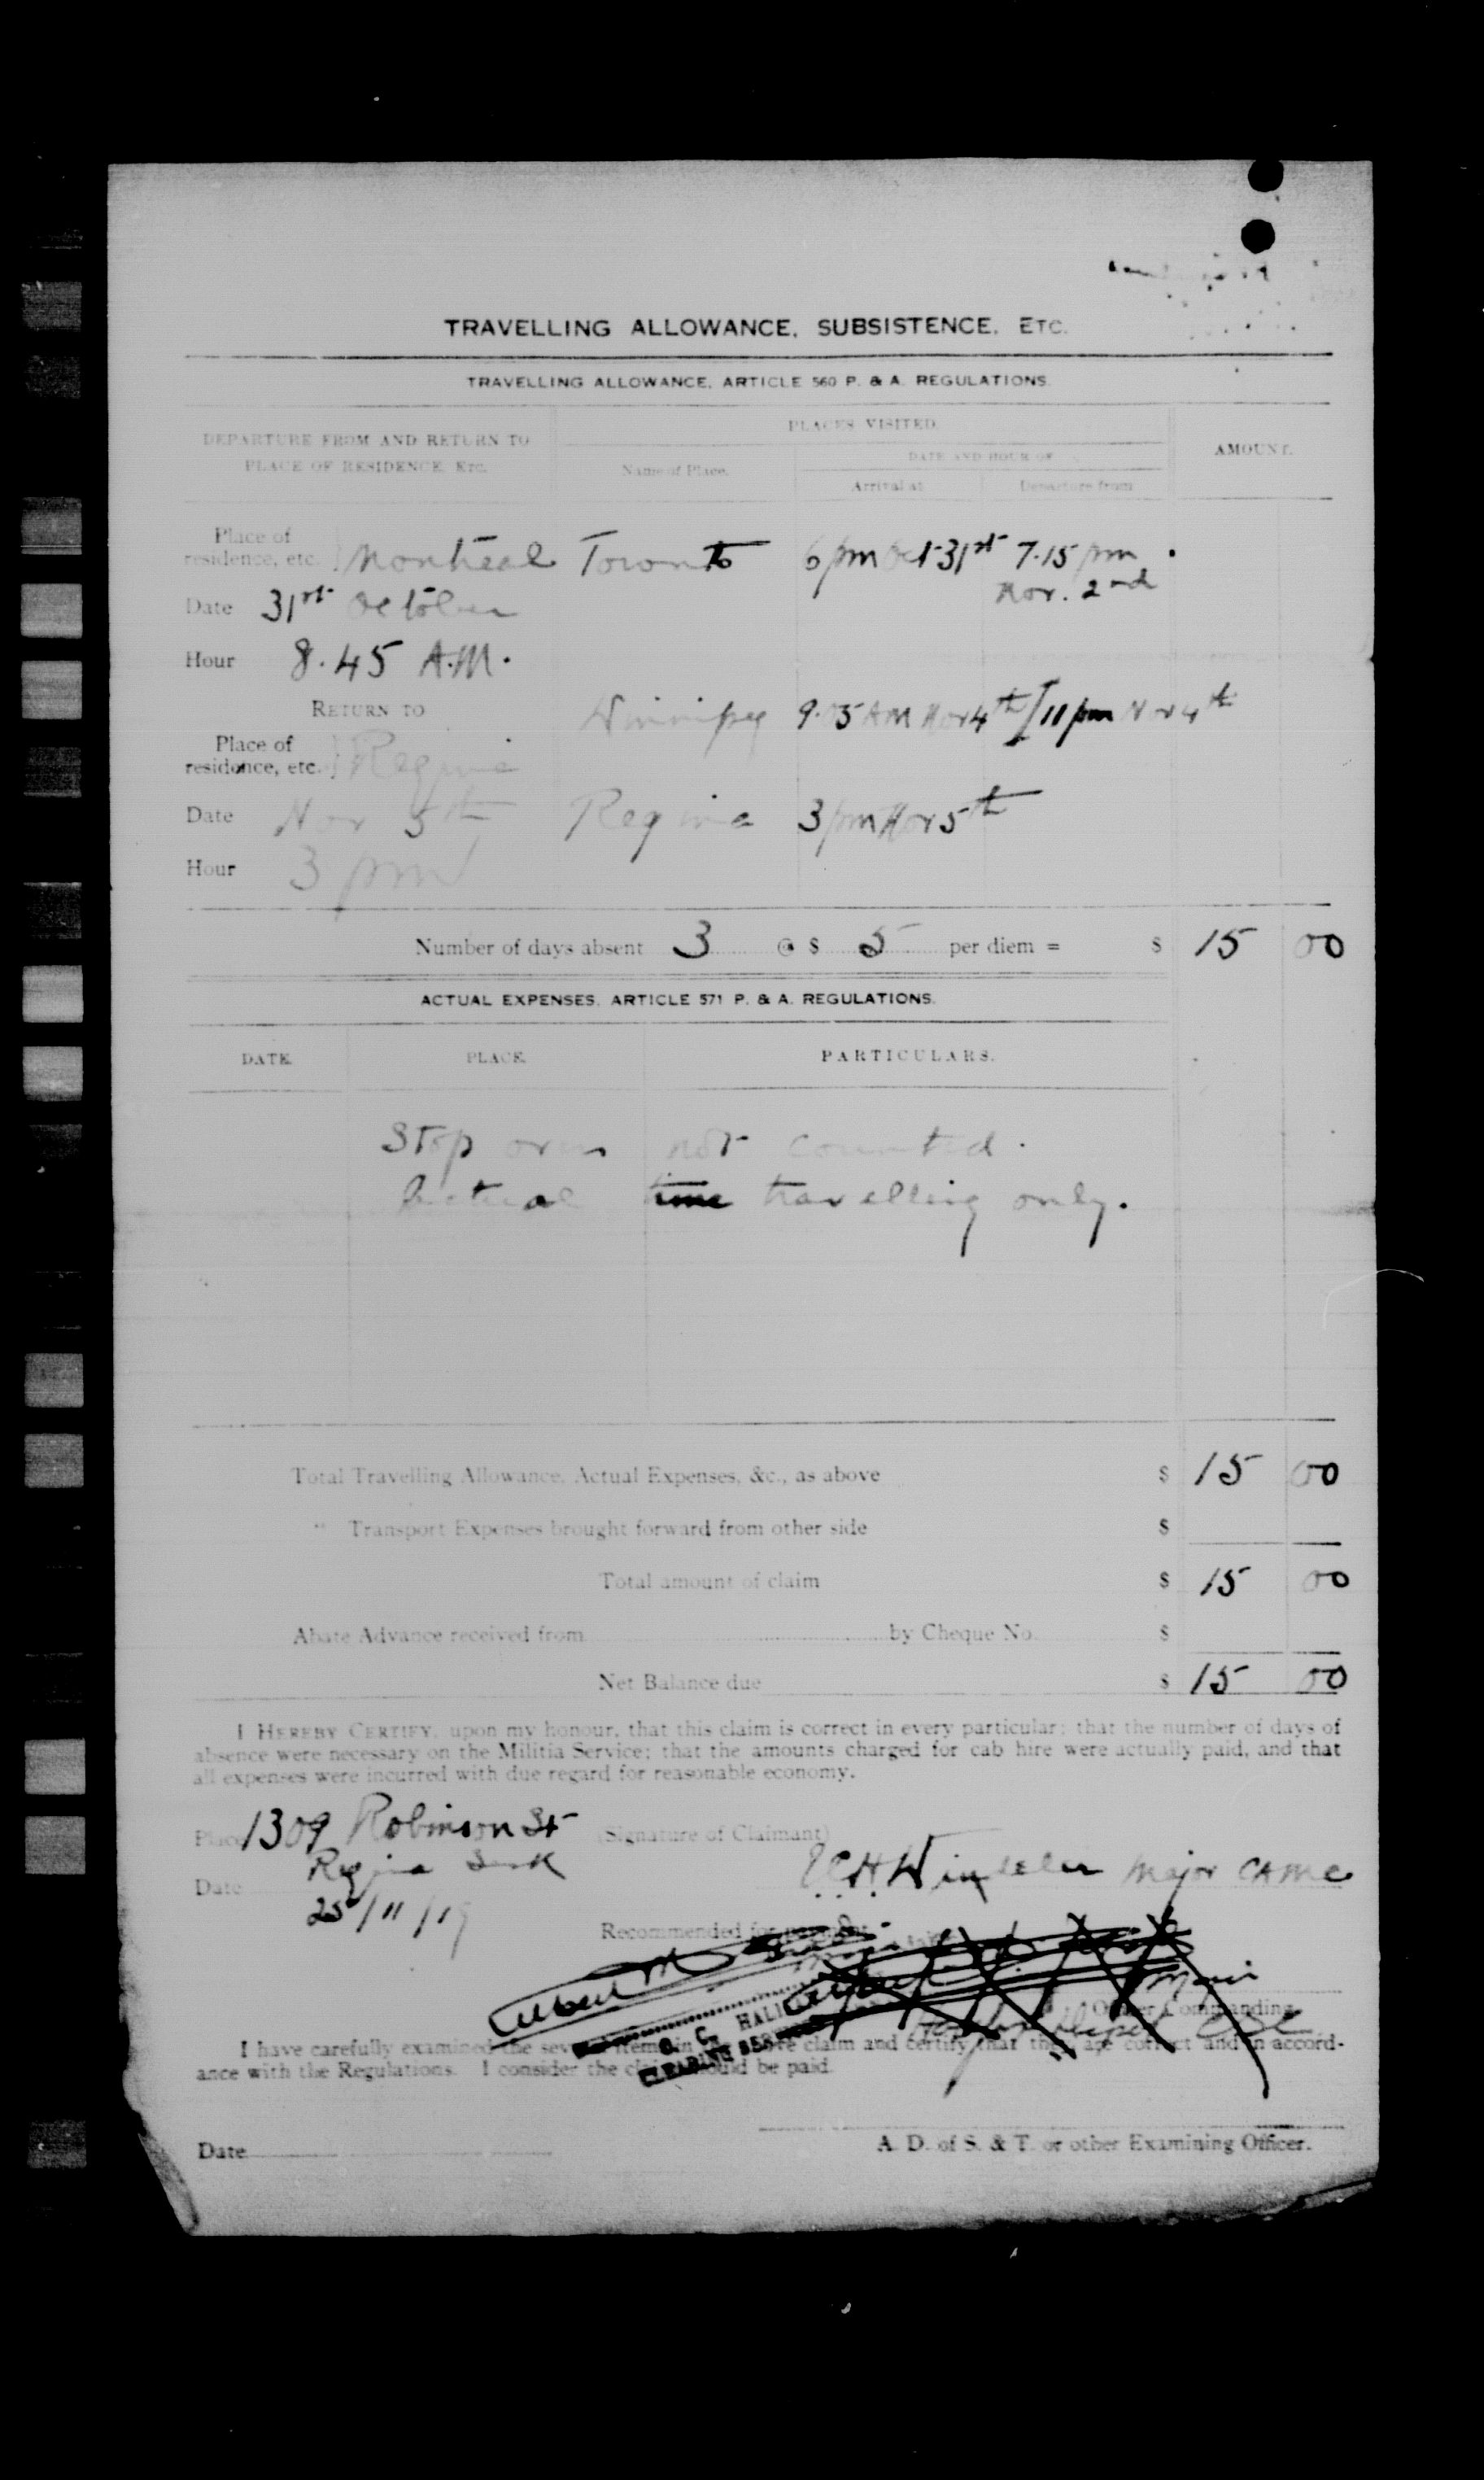 TRAVELLING ALLOWANCE, SUBSISTENCE, ETC.
TRAVELLING ALLOWANCE, ARTICLE 560 P. & A. REGULATIONS.
DEPARTURE FROM AND RETURN TO
PLACE OF RESIDENCE, Etc.
PLACES VISITED.
Name of Place.
DATE AND HOUR OF
Arrival at
Departure from
AMOUNT.
Place of
residence, etc. } Montreal Toronto 6 pm Oct 31st 7.15 pm.
Nov. 2nd
Date 31st October
Hour 8.45 A.M.
RETURN TO
Winnipeg 9.05 AM Nov 4th / 11 pm Nov 4th
Place of
residence, etc. } Regina
Date Nov 5th Regina 3 pm Nov 5th
Hour 3 pm
Number of days absent 3 @ $ 5 per diem = $ 15 00
ACTUAL EXPENSES, ARTICLE 571 P. & A. REGULATIONS.
DATE. PLACE. PARTICULARS.
Stop overs not counted.
Actual time travelling only.
Total Travelling Allowance, Actual Expenses, &c., as above $ 15 00
" Transport Expenses brought forward from other side $
Total amount of claim $ 15 00
Abate Advance received from by Cheque No. $
Net Balance due $ 15 00
I HEREBY CERTIFY, upon my honour, that this claim is correct in every particular; that the number of days of
absence were necessary on the Militia Service; that the amounts charged for cab hire were actually paid, and that
all expenses were incurred with due regard for reasonable economy.
Place 1309 Robinson St (Signature of Claimant)
Regina Sask
Major CAMC
Date 25/11/19
Recommended for
Officer Commanding
O. C. HALI
CLEARING SER
I have carefully examined the several items in the above claim and certify that they are correct and in accord-
ance with the Regulations. I consider the claim should be paid.
Date
A. D. of S. & T. or other Examining Officer.